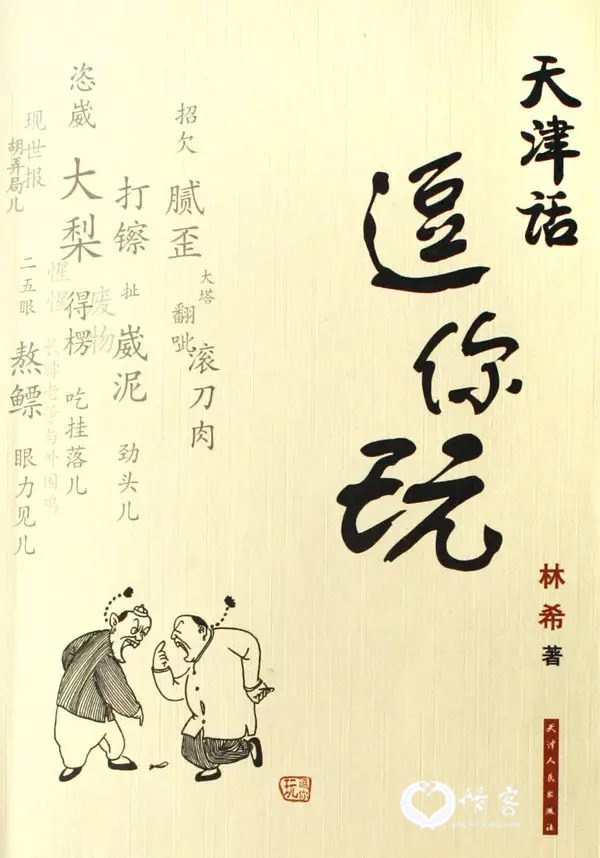 天津话
逗你玩
林希 著
天津人民出版社
招欠
腻歪
大塔
翻呲
滚刀肉
打镲
扯
崴泥
劲头儿
恣崴
大梨
得楞
吃挂落儿
废物
惺惺
现世报
胡弄局儿
二五眼
熬鳔
眼力见儿
逗你玩